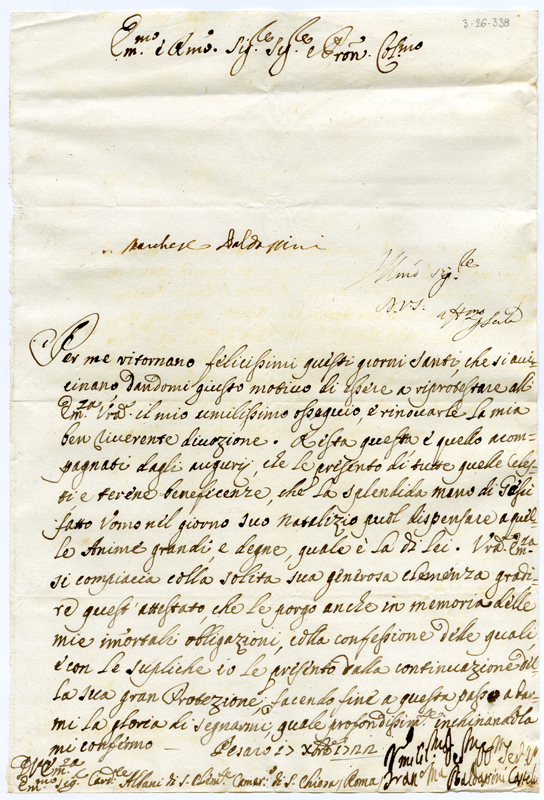 3-26-338
Em.mo e Rmo. Sig.le Sig.le e Pron. Col.mo
Marchese Baldassini
Illmo Sig.le
D.V.S.
aff.mo
Per me ritornano felicissimi questi giorni santi, che si aui=
cinano dandomi giusto motiuo di essere a riprotestare all'
Em.za Vrã. il mio umilissimo ossequio, e rinouarle la mia
ben riuerente diuozione. Resta questa e quello acom=
pagnati dagli augurij, che le presento di tutte quelle Celes=
ti e terene beneficenze, che la splendida mano di Giesù
fatto Vomo nel giorno suo natalizio puol dispensare a quel=
le Anime grandi, e degne, quale è la di Lei. Vrã. Em.za
si compiacia colla solita sua generosa clemenza gradi=
re quest'attestato, che le porgo anche in memoria delle
mie imortali obligazioni, colla confessione delle quali
e con le supliche io le presento dalla continuazione del=
la sua gran Protezione; facendo fine a questa passo a dar=
mi la gloria di segnarmi, quale profondissim.te inchinandola
mi confermo Pesaro 17 Xbre 1722
D. V. Em.za
Em.mo Sig.le Card.le Albani di S. Clem.te Camar.o di S. Chiesa Roma
Fran.co Ma. Baldassini Castelli